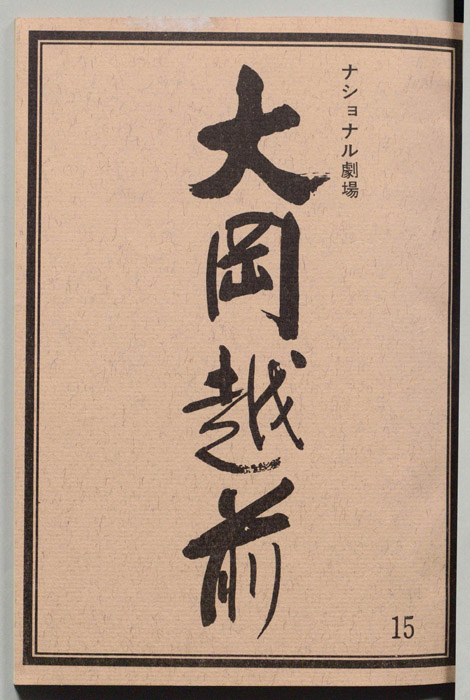 ナショナル劇場
大岡越前
15